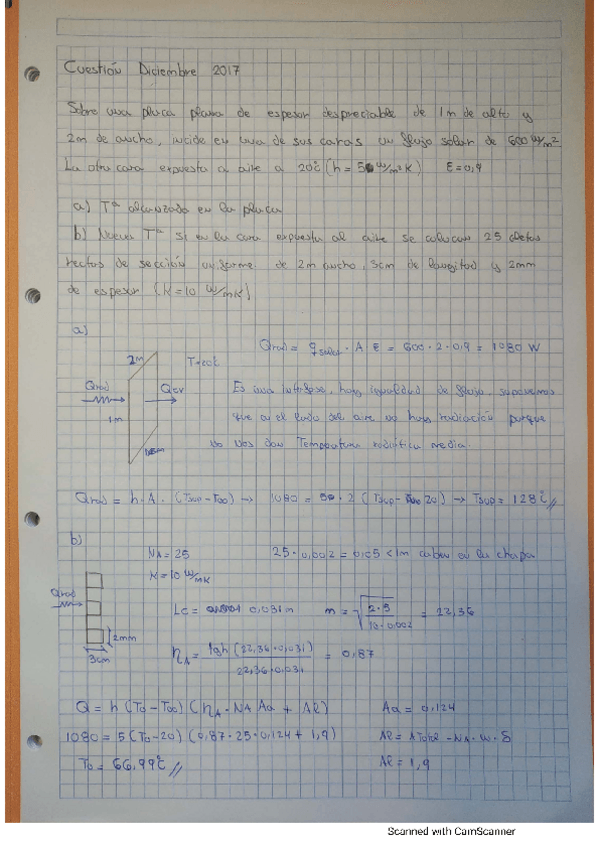 Cuestión Diciembre 2017
Sobre una placa plana de espesor despreciable de 1m de alto y
2m de ancho, incide en una de sus caras un flujo solar de 600 W/m²
La otra cara expuesta a aire a 20ºC (h = 5 W/m²K) ε = 0,9
a) Tª alcanzada en la placa
b) Nueva Tª si en la cara expuesta al aire se colocan 25 aletas
rectas de sección uniforme. de 2m ancho, 3cm de longitud y 2mm
de espesor (K = 10 W/mK)
a)
Qrad = qsolar · A · ε = 600 · 2 · 0,9 = 1080 W
2m
T=cte
Qrad
Qcv
1m
Es una interfase, hay igualdad de flujo, suponemos
que en el lado del aire no hay radiación porque
no nos dan Temperatura radiativa media.
Qrad = h · A · (Tsup - T∞) → 1080 = 5 · 2 (Tsup - 20) → Tsup = 128ºC
b)
NA = 25
25 · 0,002 = 0,05 < 1m caben en la chapa
K = 10 W/mK
Qrad
Lc = 0,031m
m = √(2·5 / 10·0,002) = 22,36
2mm
3cm
ηA = tgh (22,36 · 0,031) / 22,36 · 0,031 = 0,87
Q = h (To - T∞) (ηA · NA Aa + Al)
Aa = 0,124
1080 = 5 (To - 20) (0,87 · 25 · 0,124 + 1,9)
Al = ATotal - NA · w · δ
To = 66,99ºC
Al = 1,9
Scanned with CamScanner